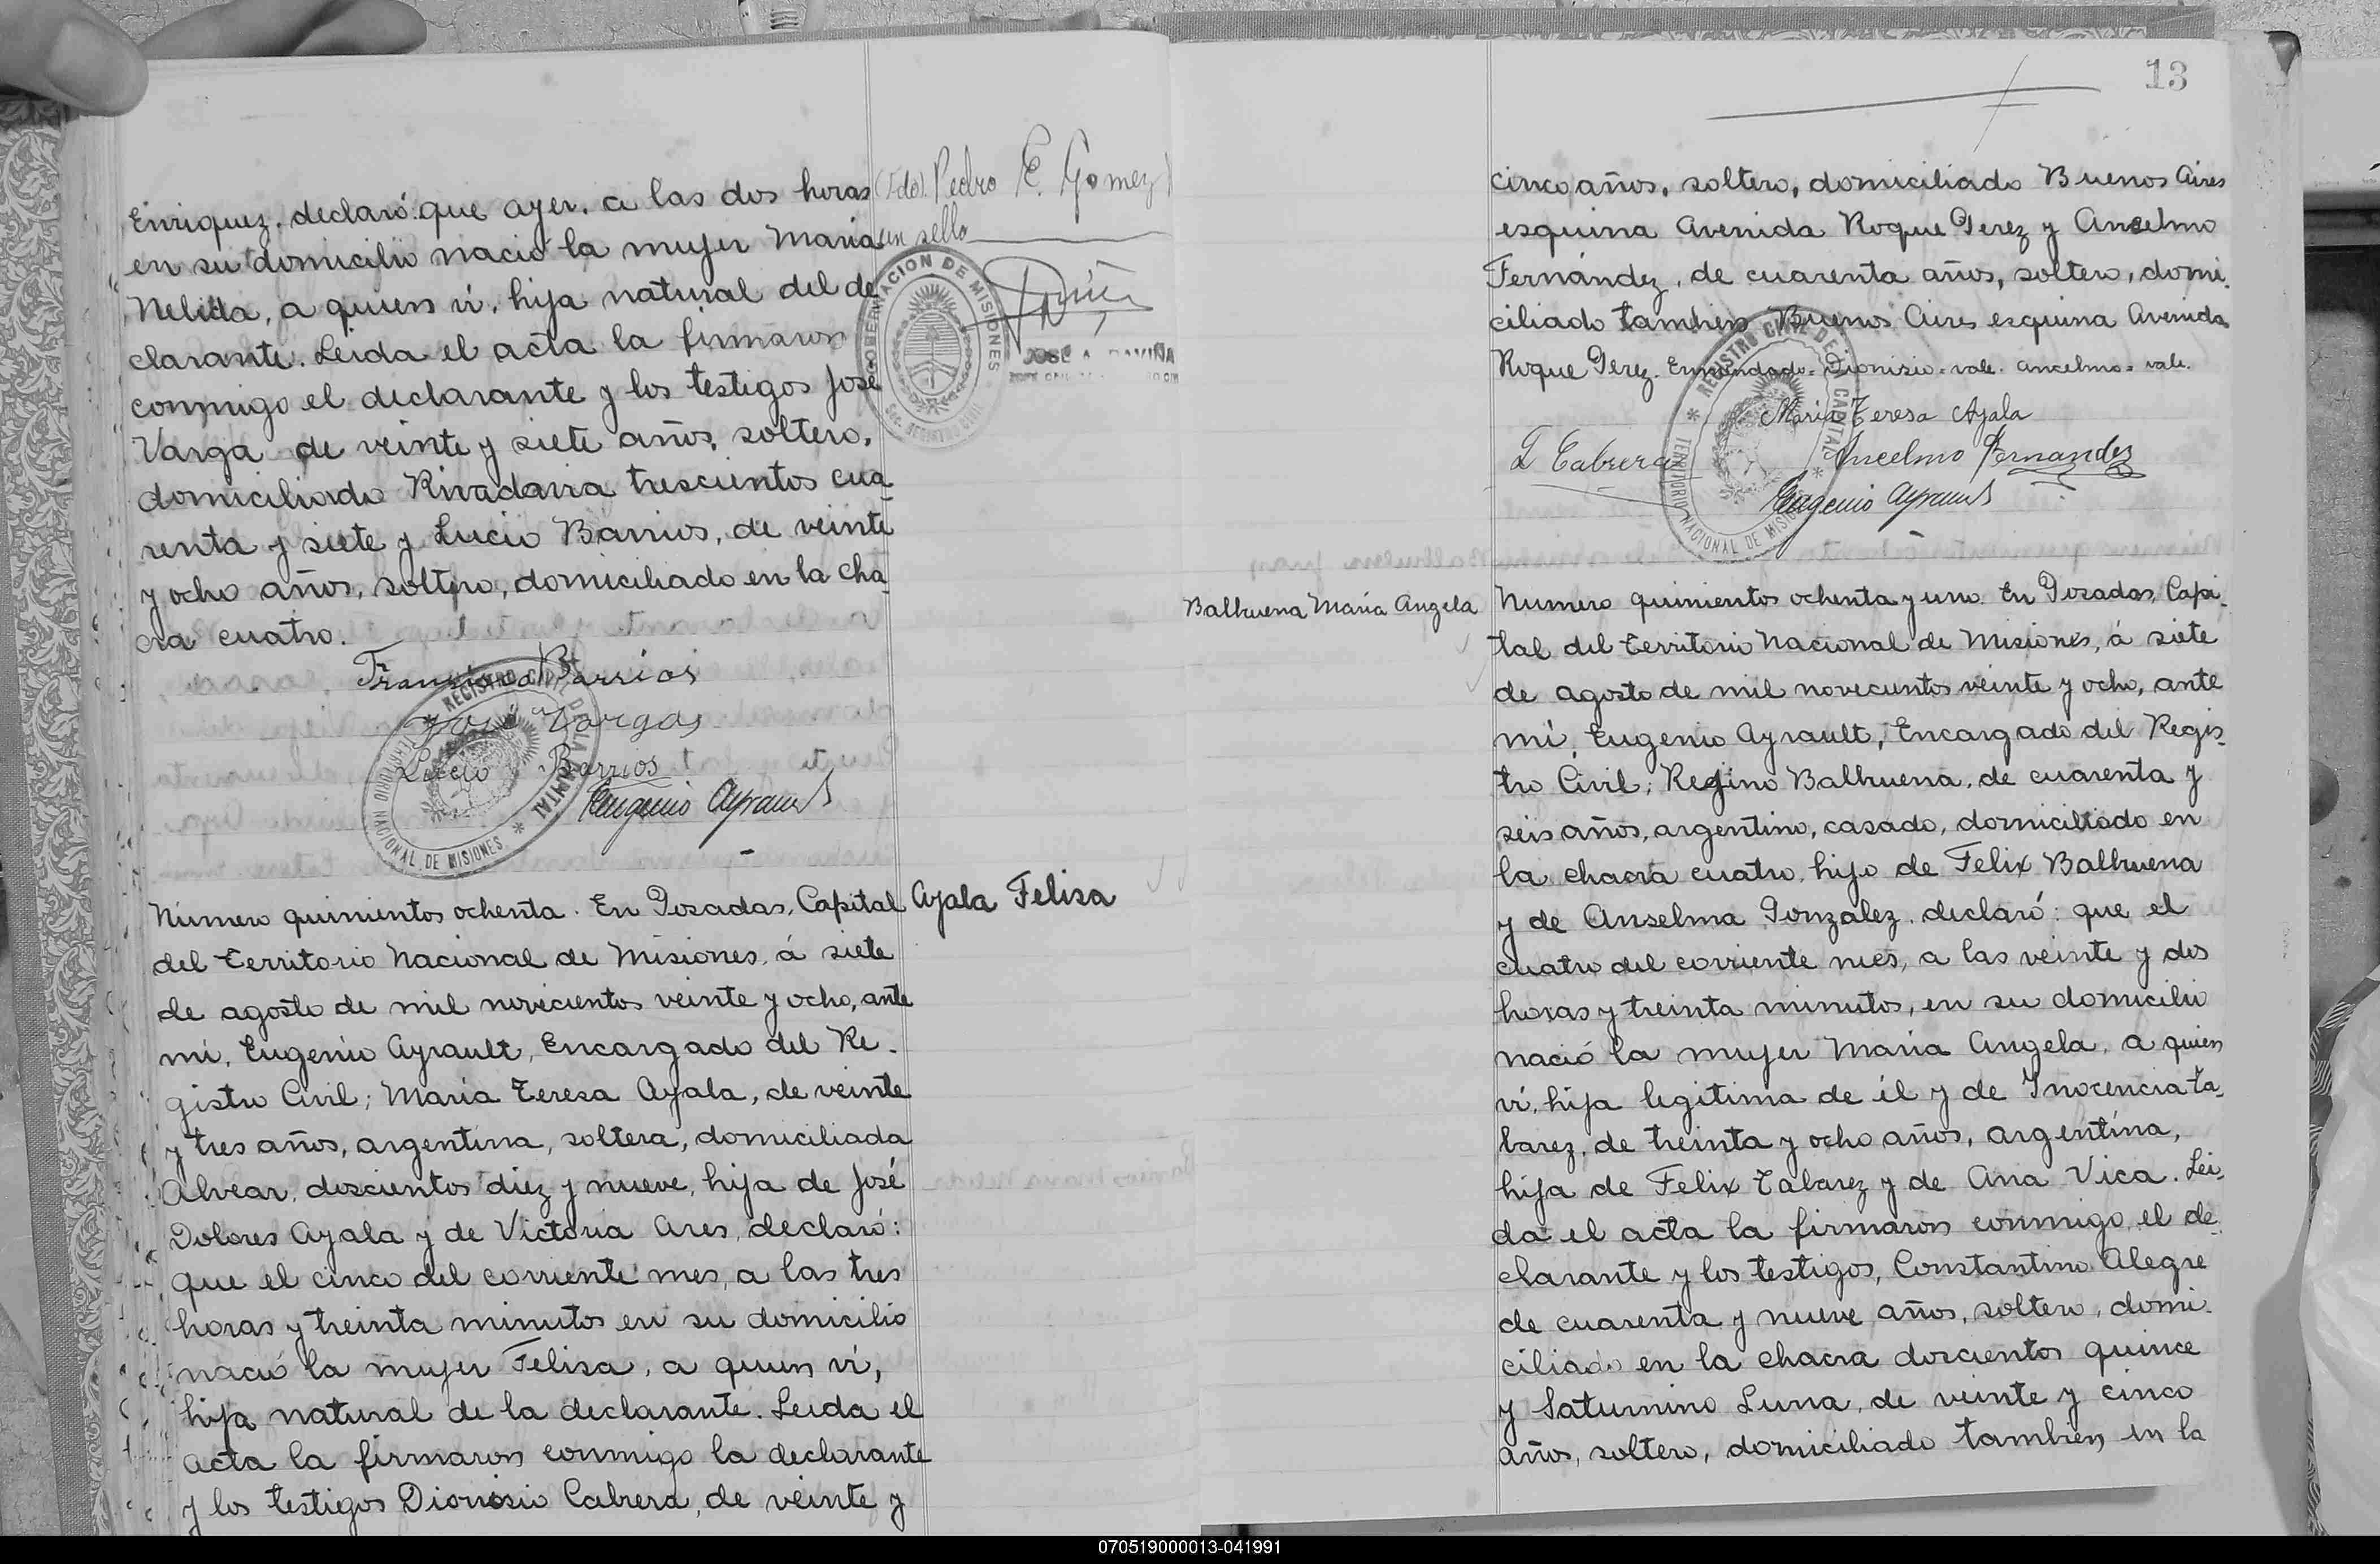 Enriquez, declaró: que ayer, a las dos horas
en su domicilio nació la mujer Maria
Nelida, a quien ví, hija natural del de
clarante. Leida el acta la firmaron
conmigo el declarante y los testigos José
Varga de veinte y siete años, soltero,
domiciliado Rivadavia trescientos cua
renta y siete y Lucio Barrios, de veinte
y ocho años, soltero, domiciliado en la cha
cra cuatro.
(Fdo). Pedro E. Gomez
un sello
GOBERNACION DE MISIONES
JOSÉ A.
Barrios
José Vargas
Lucio Barrios
Eugenio Ayrault
REGISTRO CIVIL DE LA CAPITAL
TERRITORIO NACIONAL DE MISIONES
Ayala Felisa
Número quinientos ochenta. En Posadas, Capital
del Territorio Nacional de Misiones, á siete
de agosto de mil novecientos veinte y ocho, ante
mi, Eugenio Ayrault, Encargado del Re-
gistro Civil; Maria Teresa Ayala, de veinte
y tres años, argentina, soltera, domiciliada
Alvear, doscientos diez y nueve, hija de José
Dolores Ayala y de Victoria Ares, declaró:
que el cinco del corriente mes, a las tres
horas y treinta minutos en su domicilio
nació la mujer Felisa, a quien ví,
hija natural de la declarante. Leida el
acta la firmaron conmigo la declarante
y los testigos Dionisio Cabrera, de veinte y
13
cinco años, soltero, domiciliado Buenos Aires
esquina Avenida Roque Perez y Ancelmo
Fernández, de cuarenta años, soltero, domi-
ciliado tambien Buenos Aires esquina Avenida
Roque Perez. Enmendado = Dionisio = vale. Ancelmo = vale.
Maria Teresa Ayala
D Cabrera
Ancelmo Fernandez
Eugenio Ayrault
REGISTRO CIVIL DE LA CAPITAL
TERRITORIO NACIONAL DE MISIONES
Balbuena Maria Angela
Número quinientos ochenta y uno. En Posadas, Capi-
tal del Territorio Nacional de Misiones, á siete
de agosto de mil novecientos veinte y ocho, ante
mi, Eugenio Ayrault, Encargado del Regis-
tro Civil; Regino Balbuena, de cuarenta y
seis años, argentino, casado, domiciliado en
la chacra cuatro, hijo de Felix Balbuena
y de Anselma Gonzalez, declaró: que el
cuatro del corriente mes, a las veinte y dos
horas y treinta minutos, en su domicilio
nació la mujer Maria Angela, a quien
ví, hija legitima de él y de Inocencia Ta-
barez, de treinta y ocho años, argentina,
hija de Felix Tabarez y de Ana Vica. Lei-
da el acta la firmaron conmigo, el de-
clarante y los testigos, Constantino Alegre
de cuarenta y nueve años, soltero, domi-
ciliado en la chacra doscientos quince
y Saturnino Luna, de veinte y cinco
años, soltero, domiciliado tambien en la
070519000013-041991